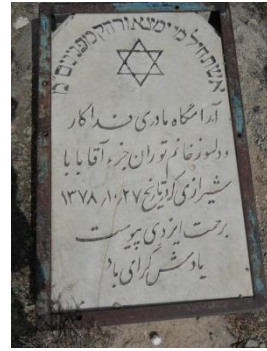 אשת חיל מי ימצא ורחק מפנינים מ
آرامگاه مادری فداکار
و دلسوز خانم توران جزء آقابابا
شیرازی که در تاریخ ۱۳۷۸/۱۰/۲۷
برحمت ایزدی پیوست
یادش گرامی باد